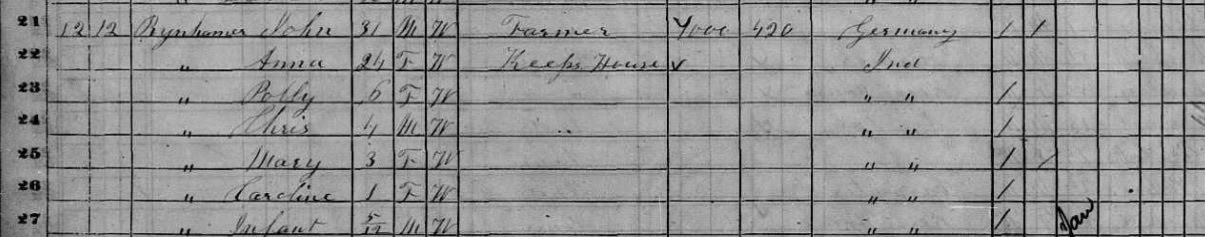 21 12 12 Rynhamer John 31 M W Farmer 4000 420 Germany / /
22 " Anna 24 F W Keeps House ✓ Ind
23 " Polly 6 F W " " /
24 " Chris 4 M W " " /
25 " Mary 3 F W " " / /
26 " Caroline 1 F W " " /
27 " Infant 5/12 M W " " / Jan